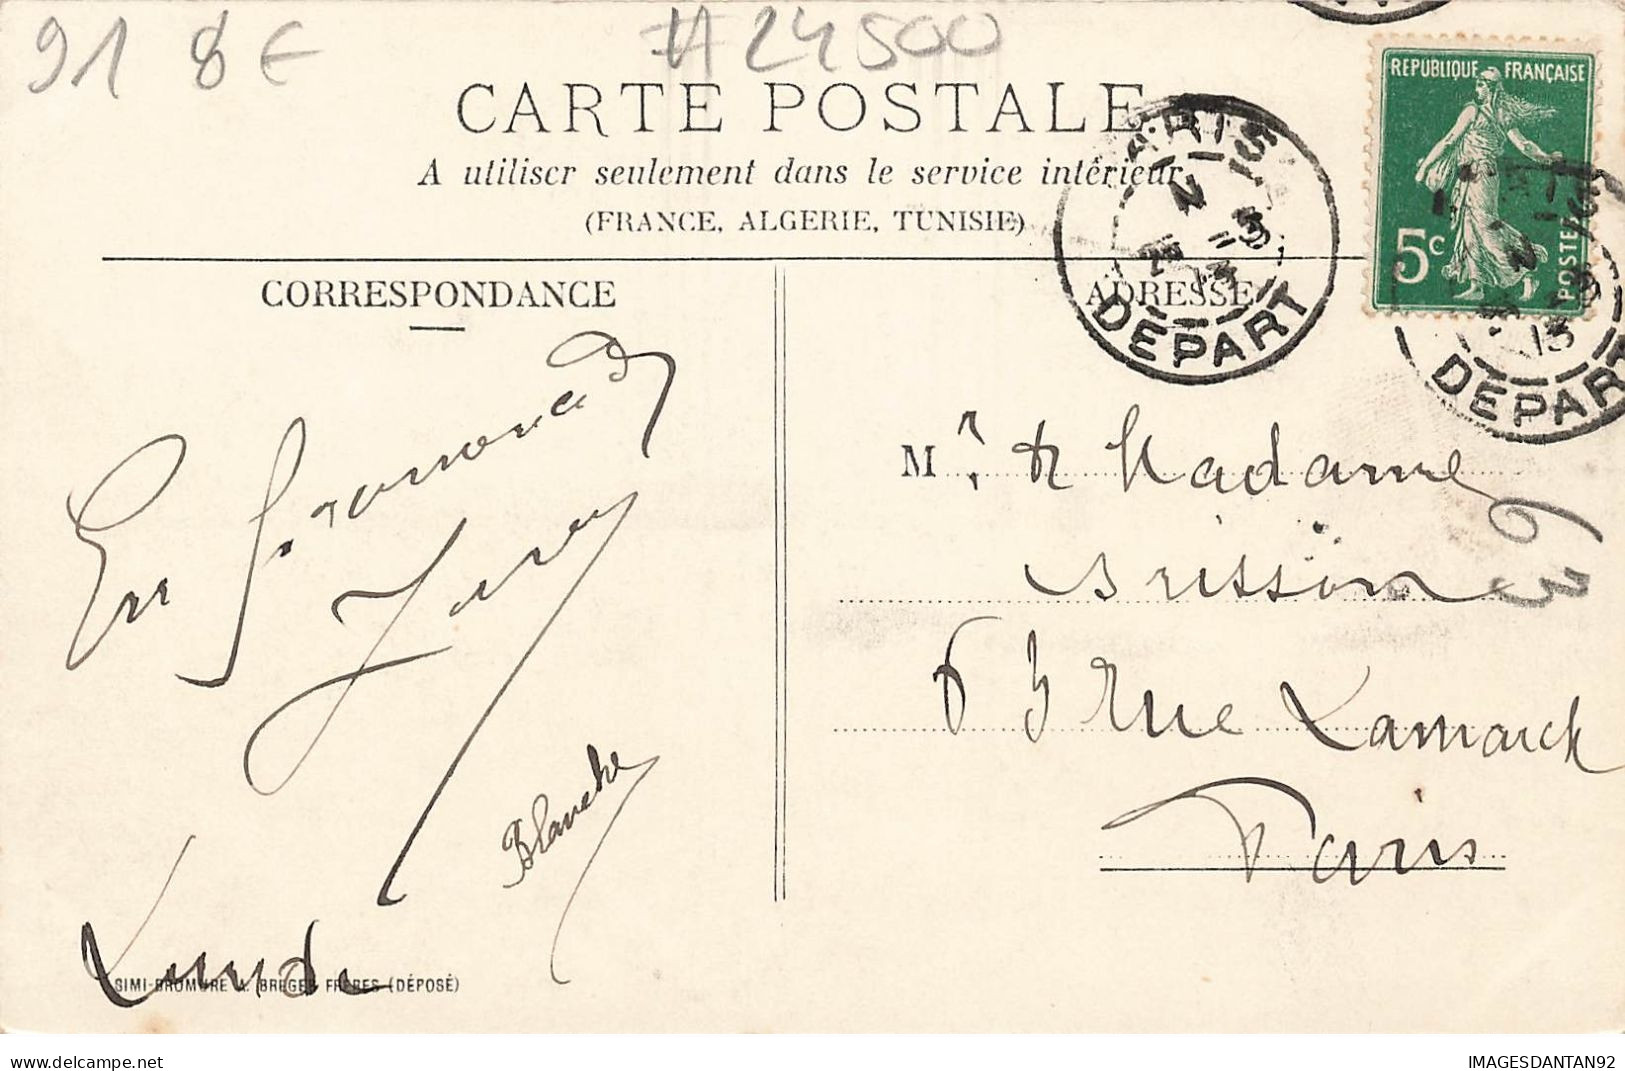 91 8€ #24500
CARTE POSTALE
A utiliser seulement dans le service intérieur
(FRANCE, ALGERIE, TUNISIE)
REPUBLIQUE FRANÇAISE
5c
POSTES
PARIS
DEPART
DEPART
CORRESPONDANCE
ADRESSE
En promenade
Mr. & Madame
Brisson
63 rue Lamarck
Paris
63
Blanche
Lundi
SIMI-BROMURE A. BREGER FRÈRES (DÉPOSÉ)
delcampe.net
IMAGESDANTAN92